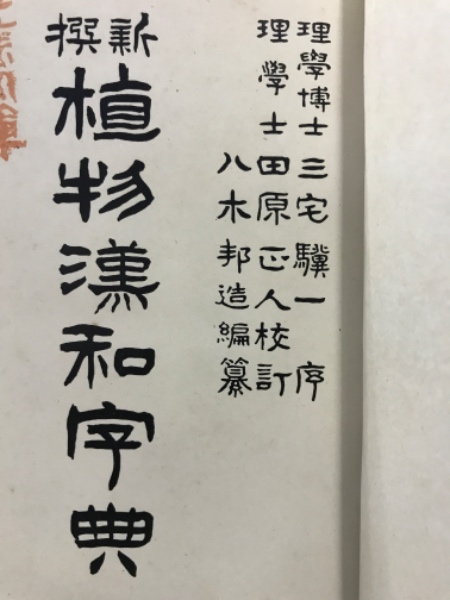 理學博士三宅驥一序
理學士田原正人校訂
八木邦造編纂
新撰
植物漢和字典